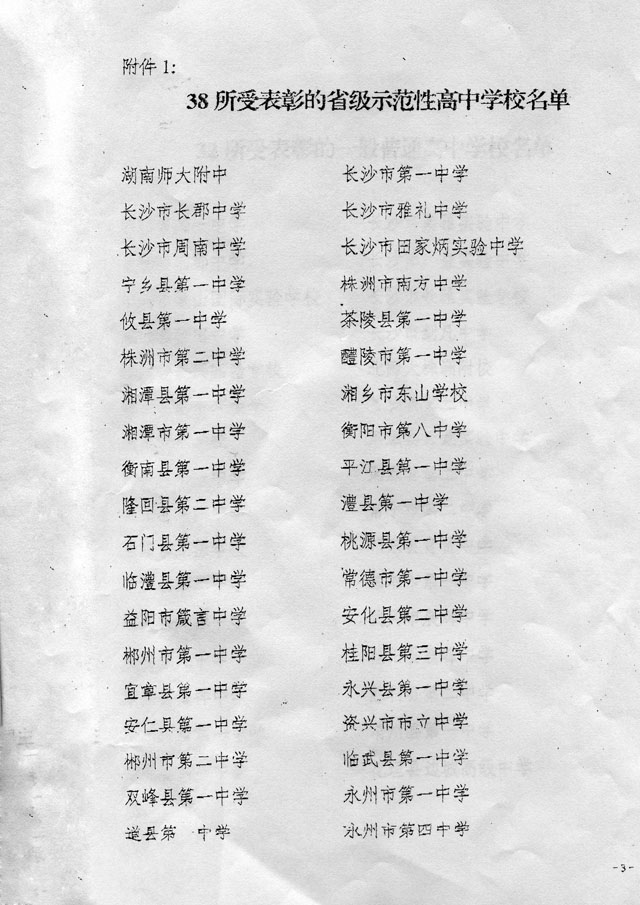 附件 1:
38 所受表彰的省级示范性高中学校名单
湖南师大附中 长沙市第一中学
长沙市长郡中学 长沙市雅礼中学
长沙市周南中学 长沙市田家炳实验中学
宁乡县第一中学 株洲市南方中学
攸县第一中学 茶陵县第一中学
株洲市第二中学 醴陵市第一中学
湘潭县第一中学 湘乡市东山学校
湘潭市第一中学 衡阳市第八中学
衡南县第一中学 平江县第一中学
隆回县第二中学 澧县第一中学
石门县第一中学 桃源县第一中学
临澧县第一中学 常德市第一中学
益阳市箴言中学 安化县第二中学
郴州市第一中学 桂阳县第三中学
宜章县第一中学 永兴县第一中学
安仁县第一中学 资兴市市立中学
郴州市第二中学 临武县第一中学
双峰县第一中学 永州市第一中学
道县第 中学 永州市第四中学
-3-